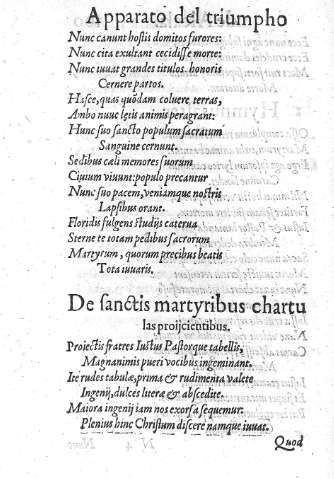 Apparato del triumpho
Nunc canunt hostis domitos furores:
Nunc cita exultant cecidisse morte:
Nunc iuuat grandes titulos honoris
Cernere partos.
Hasce, quas quōdam coluere terras,
Ambo nunc lętis animis peragrant:
Hunc suo sancto populum sacratum
Sanguine cernunt.
Sedibus cæli memores suorum
Ciuium viuunt: populo precantur
Nunc suo pacem, veniamque nostris
Lapsibus orant.
Floridis fulgens studijs caterua
Sterne te totam pedibus sacrorum
Martyrum, quorum precibus beatis
Tota iuuaris.
De sanctis martyribus chartu
las proijcientibus.
Proiectis fratres Iustus Pastorque tabellis,
Magnanimis pueri vocibus ingeminant.
Ite rudes tabulæ, prima & rudimenta valete
Ingenij, dulces literæ & abscedite.
Maiora ingenij iam nos exorsa sequemur:
Plenius hinc Christum discere namque iuuat.
Quod